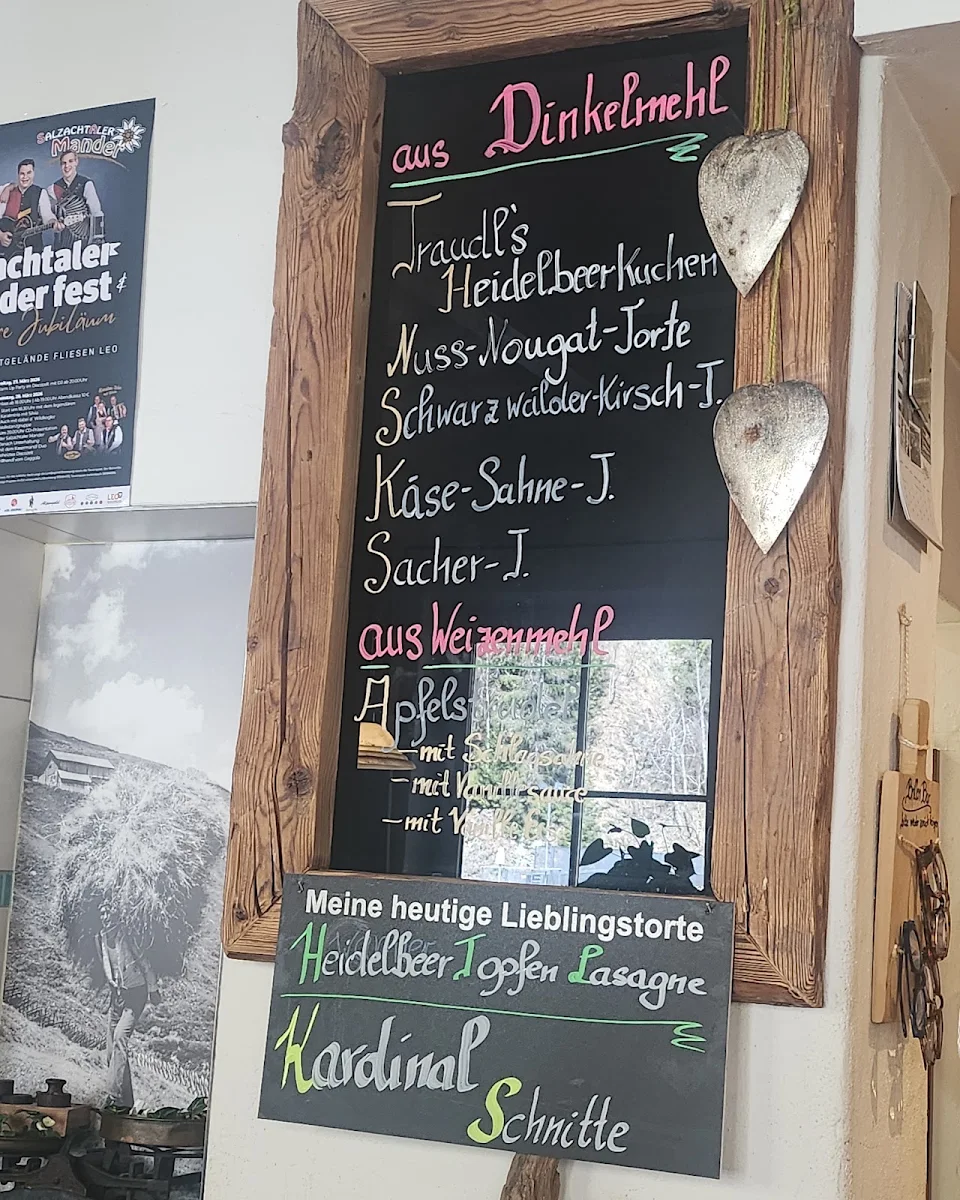 SALZACHTALER
Mander
achtaler
der fest
re Jubiläum
TGELÄNDE FLIESEN LEO
aus Dinkelmehl
Traudl's
Heidelbeerkuchen
Nuss-Nougat-Torte
Schwarzwälder-Kirsch-T.
Käse-Sahne-T.
Sacher-T.
aus Weizenmehl
Apfelstrudel
-mit Schlagsahne
-mit Vanillesauce
-mit
Meine heutige Lieblingstorte
Heidelbeer Topfen Lasagne
Kardinal
Schnitte